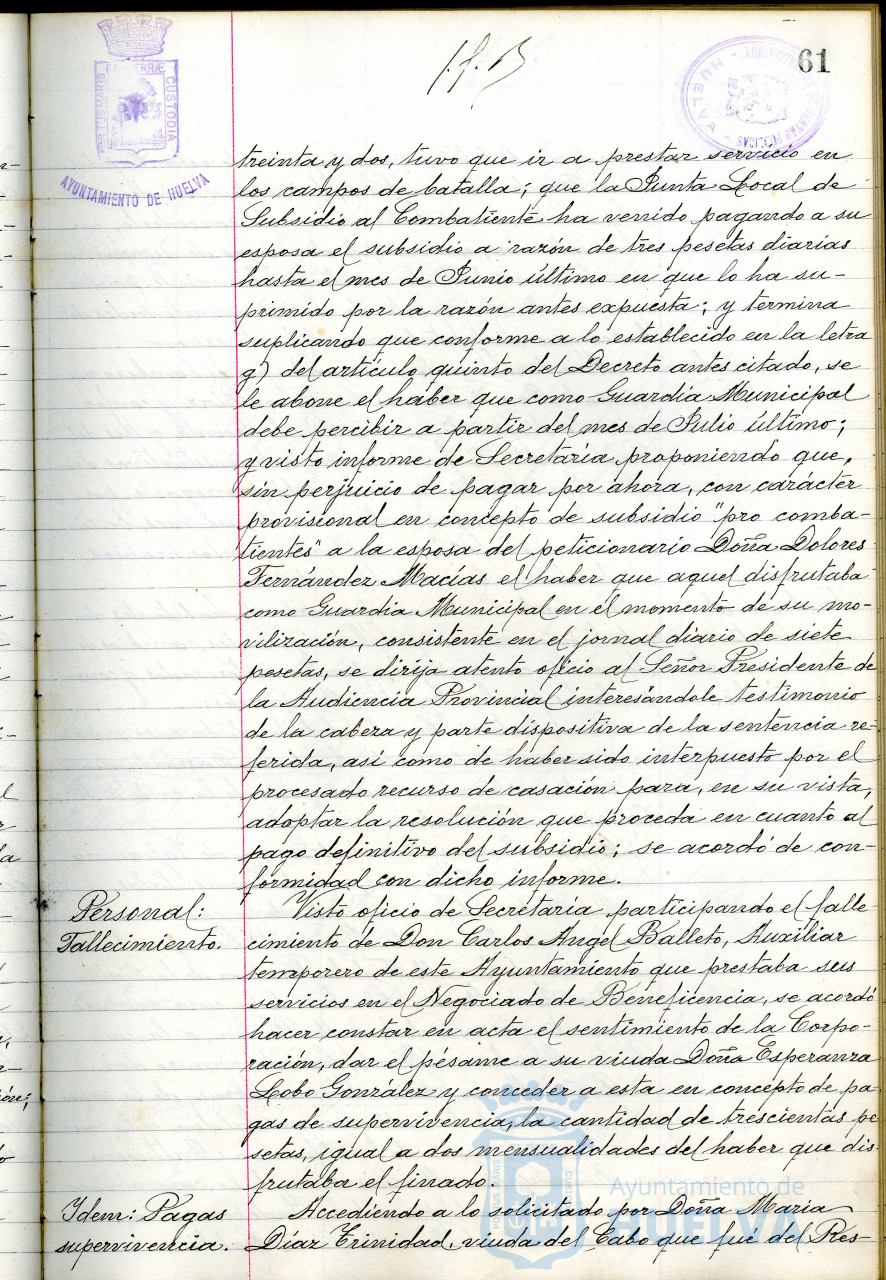 61
PORTUS MARIS
ET TERRÆ
CUSTODIA
AYUNTAMIENTO DE HUELVA
HUELVA
treinta y dos, tuvo que ir a prestar servicio en
los campos de batalla; que la Junta Local de
Subsidio al Combatiente ha venido pagando a su
esposa el subsidio a razón de tres pesetas diarias
hasta el mes de Junio último en que lo ha su-
primido por la razón antes expuesta; y termina
suplicando que conforme a lo establecido en la letra
g) del artículo quinto del Decreto antes citado, se
le abone el haber que como Guardia Municipal
debe percibir a partir del mes de Julio último;
y visto informe de Secretaría proponiendo que,
sin perjuicio de pagar por ahora, con carácter
provisional en concepto de subsidio "pro comba-
tientes" a la esposa del peticionario Doña Dolores
Fernández Macías el haber que aquel disfrutaba
como Guardia Municipal en el momento de su mo-
vilización, consistente en el jornal diario de siete
pesetas, se dirija atento oficio al Señor Presidente de
la Audiencia Provincial interesándole testimonio
de la cabeza y parte dispositiva de la sentencia re-
ferida, así como de haber sido interpuesto por el
procesado recurso de casación para, en su vista,
adoptar la resolución que proceda en cuanto al
pago definitivo del subsidio; se acordó de con-
formidad con dicho informe.
Personal:
Fallecimiento.
Visto oficio de Secretaría participando el falle-
cimiento de Don Carlos Angel Balleto, Auxiliar
temporero de este Ayuntamiento que prestaba sus
servicios en el Negociado de Beneficencia, se acordó
hacer constar en acta el sentimiento de la Corpo-
ración, dar el pésame a su viuda Doña Esperanza
Lobo González y conceder a esta en concepto de pa-
gas de supervivencia, la cantidad de trescientas pe-
setas, igual a dos mensualidades del haber que dis-
frutaba el finado.
Idem: Pagas
supervivencia.
Accediendo a lo solicitado por Doña Maria
Díaz Trinidad, viuda del Cabo que fue del Res-
Ayuntamiento de
HUELVA